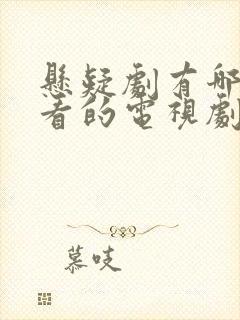 懸疑劇有哪
看的電視劇
慕吱